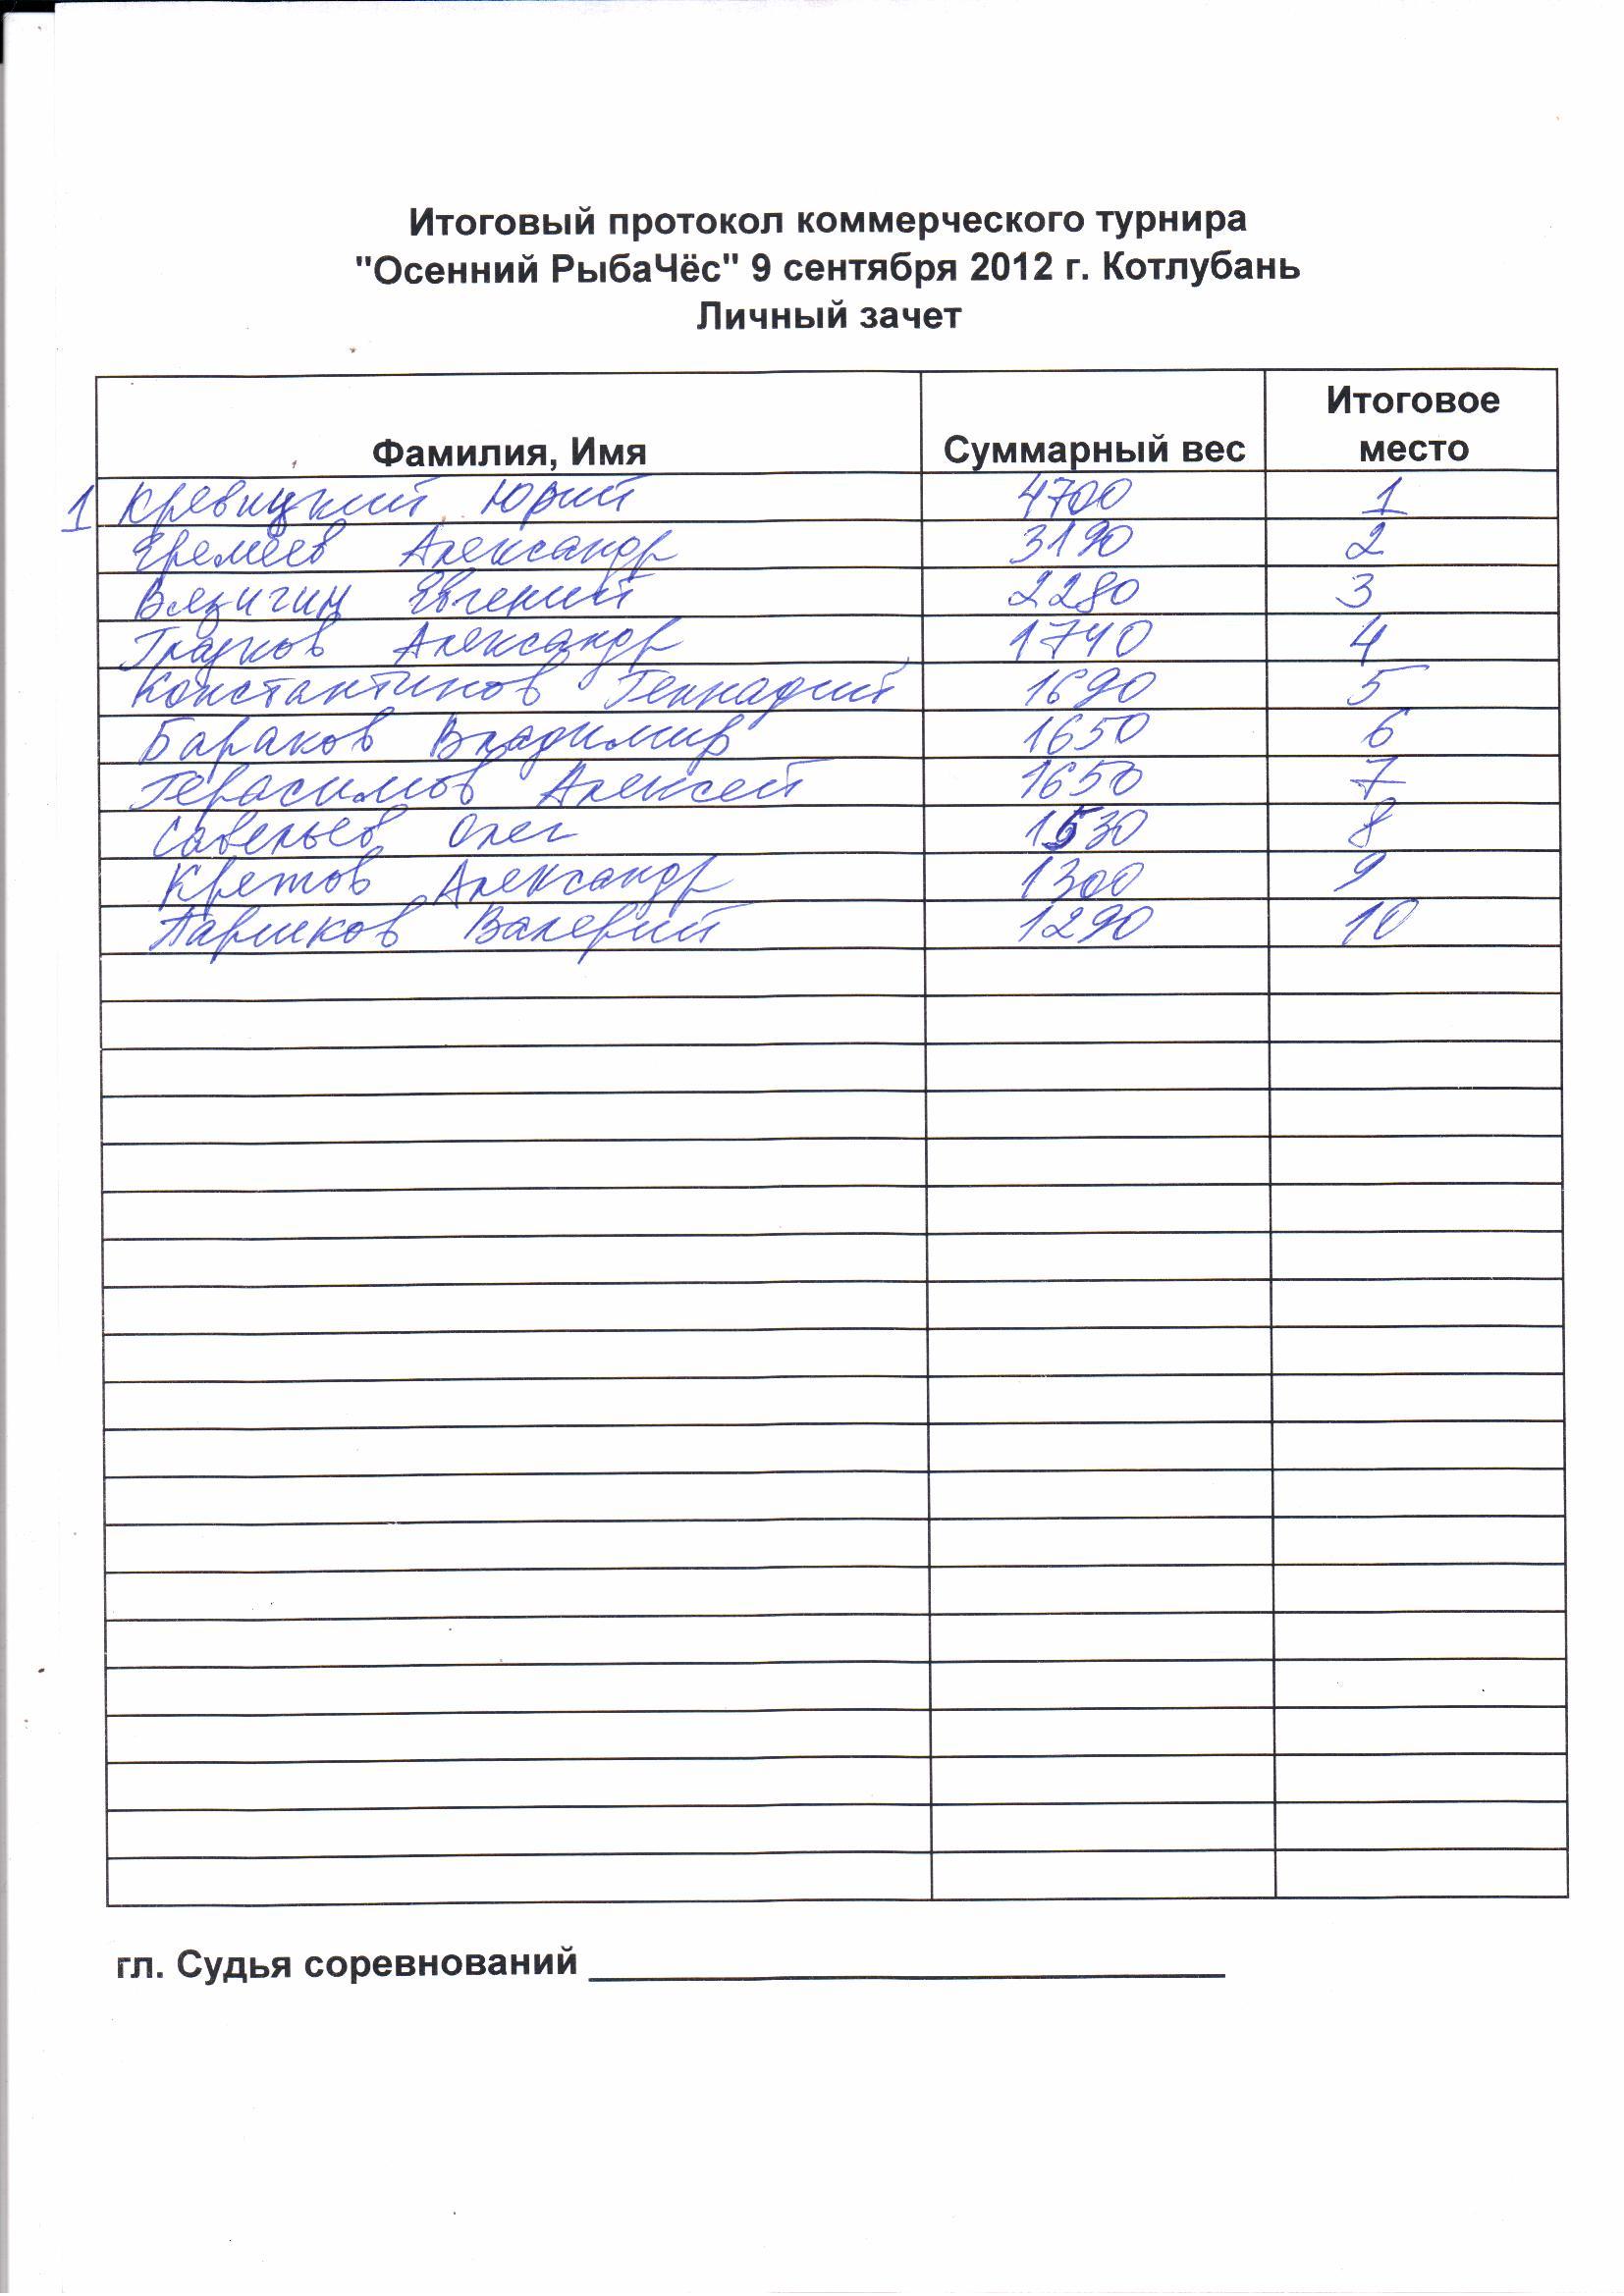 Итоговый протокол коммерческого турнира
"Осенний РыбаЧёс" 9 сентября 2012 г. Котлубань
Личный зачет
Фамилия, Имя Суммарный вес Итоговое место
1 Кревицкий Юрий 4700 1
Еремеев Александр 3190 2
Вязигин Евгений 2280 3
Гладков Александр 1740 4
Константинов Геннадий 1690 5
Бараков Владимир 1650 6
Герасимов Алексей 1650 7
Савельев Олег 1530 8
Кретов Александр 1300 9
Паршков Валерий 1290 10
гл. Судья соревнований